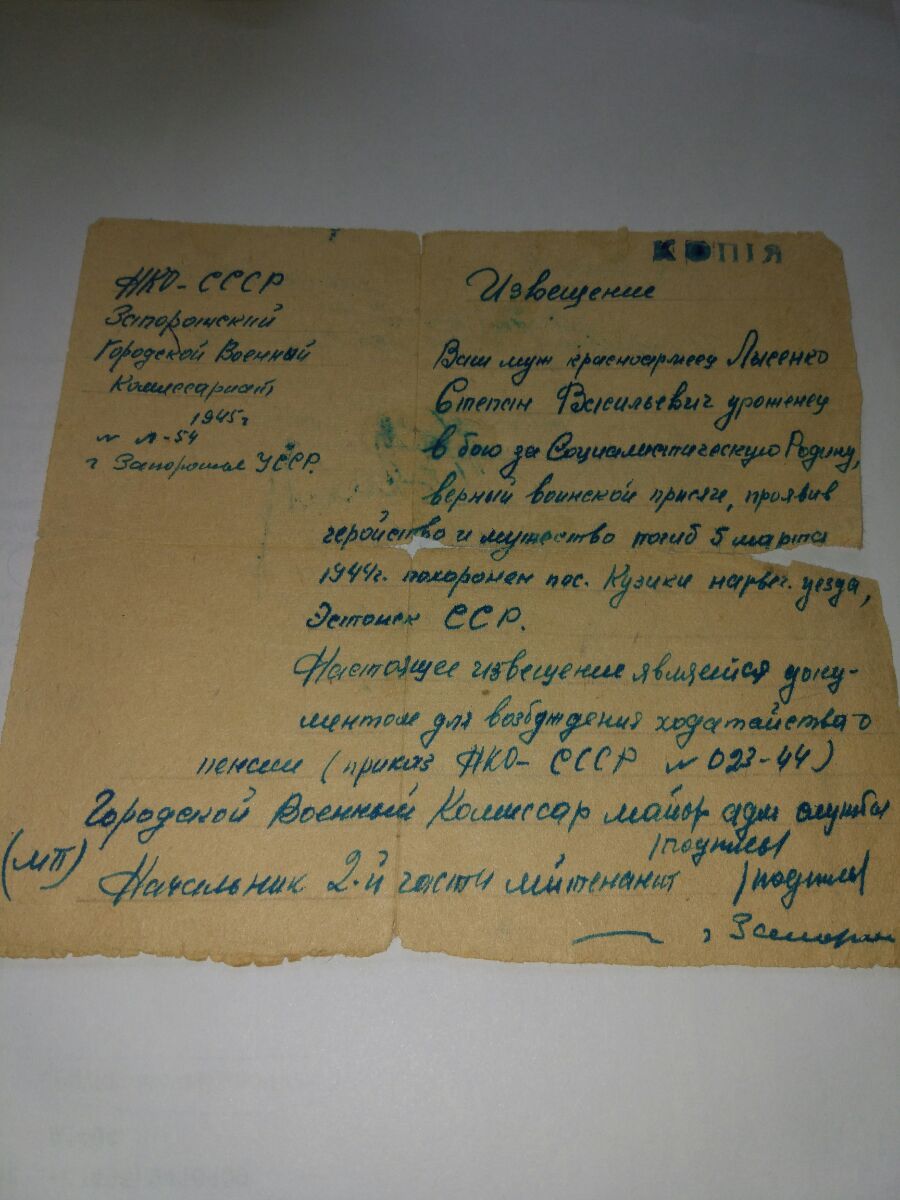 КОПІЯ
НКО-СССР
Запорожский
Городской Военный
Комиссариат
1945г
№ Л-54
г Запорожье УССР.
Извещение
Ваш муж красноармеец Лысенко
Степан Васильевич уроженец
в бою за Социалистическую Родину,
верный воинской присяге, проявив
геройство и мужество погиб 5 марта
1944г. похоронен пос. Кузики нарвег. уезда,
Эстонск ССР.
Настоящее извещение является доку-
ментом для возбуждения ходатайства о
пенсии (приказ НКО-СССР № 023-44)
Городской Военный Комиссар майор адм службы
/подпись/
(МП) Начальник 2-й части лейтенант /подпись/